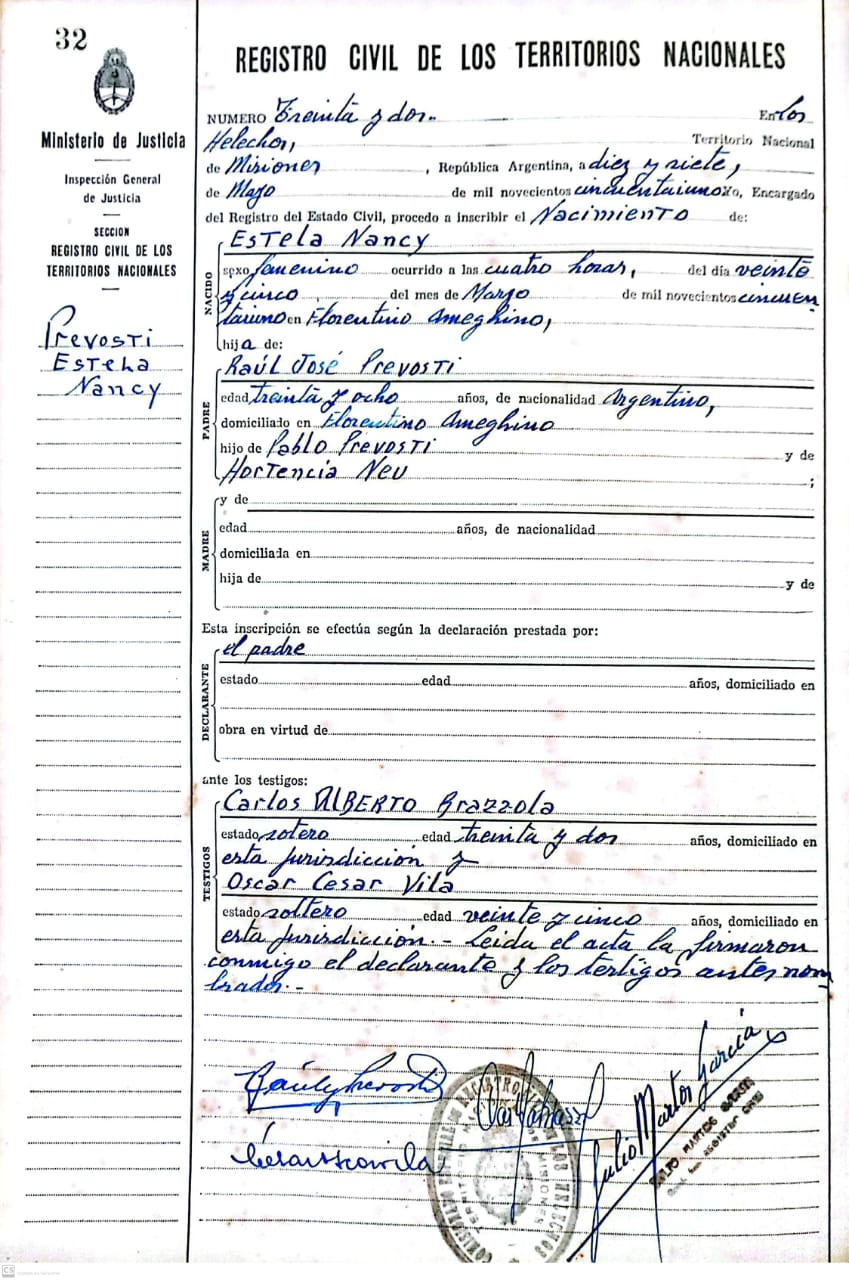 32
REGISTRO CIVIL DE LOS TERRITORIOS NACIONALES
Ministerio de Justicia
Inspección General
de Justicia
SECCION
REGISTRO CIVIL DE LOS
TERRITORIOS NACIONALES
Prevosti
Estela
Nancy
NUMERO Treinta y dos.- En los
Helechos, Territorio Nacional
de Misiones, República Argentina, a diez y siete,
de Mayo de mil novecientos cincuentaiuno yo, Encargado
del Registro del Estado Civil, procedo a inscribir el Nacimiento de:
NACIDO
Estela Nancy
sexo femenino ocurrido a las cuatro horas, del día veinte
y cinco del mes de Marzo de mil novecientos cincuen
taiuno en Florentino Ameghino,
hija de:
PADRE
Raúl José Prevosti
edad treinta y ocho años, de nacionalidad Argentino,
domiciliado en Florentino Ameghino
hijo de Pablo Prevosti y de
Hortencia Neu ;
MADRE
y de
edad años, de nacionalidad
domiciliada en
hija de y de
Esta inscripción se efectúa según la declaración prestada por:
DECLARANTE
el padre
estado edad años, domiciliado en
obra en virtud de
ante los testigos:
TESTIGOS
Carlos Alberto Brazzola
estado sotero edad treinta y dos años, domiciliado en
esta jurisdicción y
Oscar Cesar Vila
estado soltero edad veinte y cinco años, domiciliado en
esta jurisdicción.- Leida el acta la firmaron
conmigo el declarante y los testigos antes nom
brados.-
Julio Martos García
JULIO MARTOS GARCIA
CS